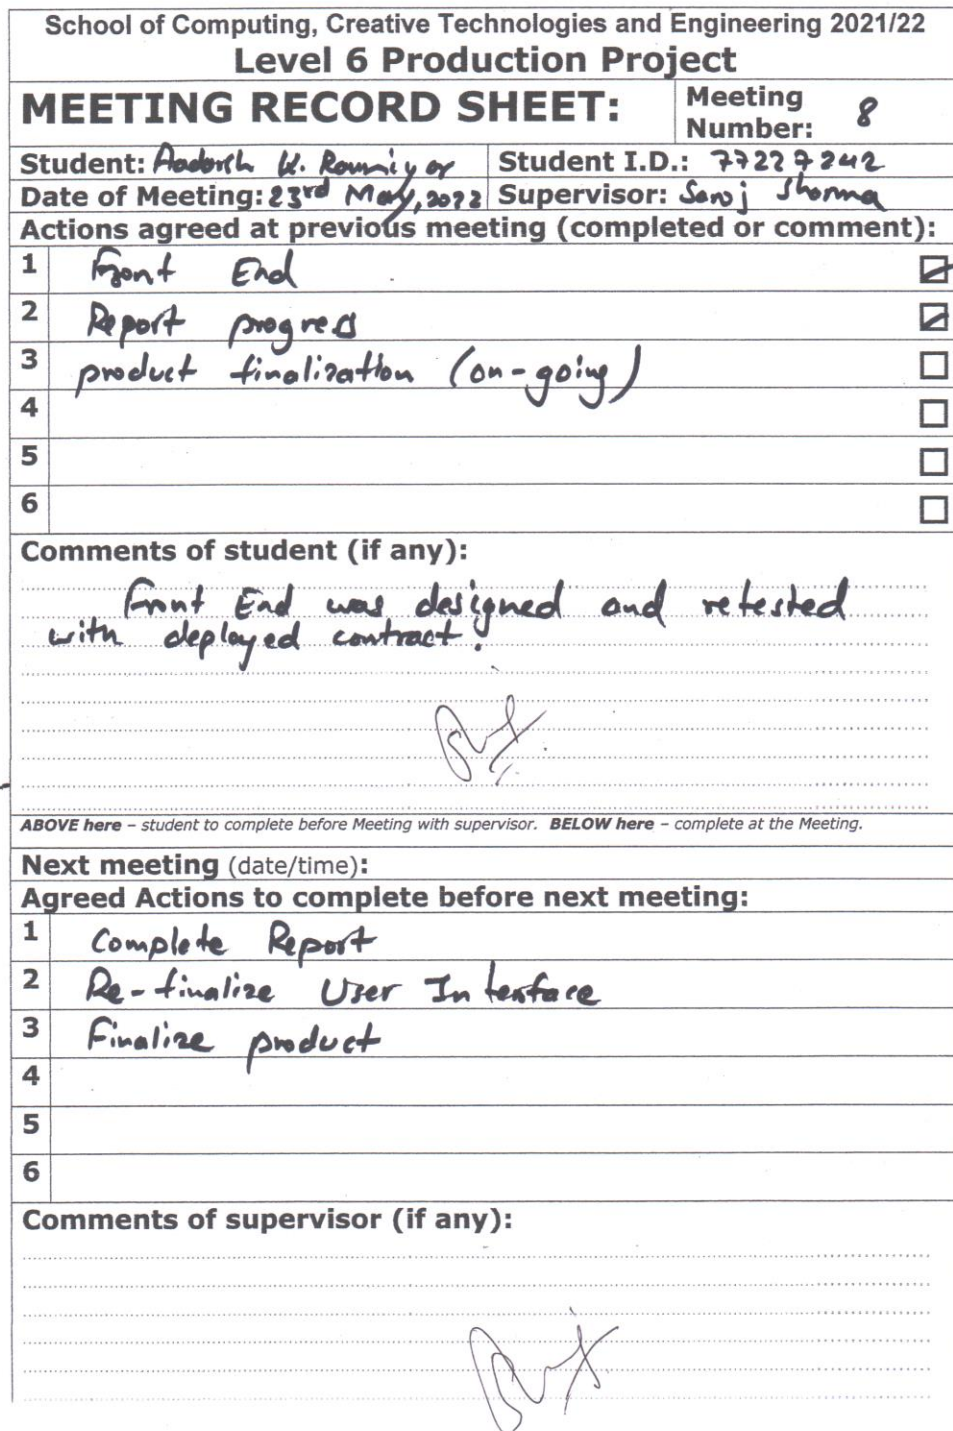 School of Computing, Creative Technologies and Engineering 2021/22
Level 6 Production Project
MEETING RECORD SHEET:
Meeting Number: 8
Student: Aadarsh K. Rauniyar
Student I.D.: 77227242
Date of Meeting: 23rd May, 2022
Supervisor: Saroj Sharma
Actions agreed at previous meeting (completed or comment):
1 Front End
2 Report progress
3 product finalization (on-going)
4
5
6
Comments of student (if any):
Front End was designed and retested
with deployed contract.
ABOVE here – student to complete before Meeting with supervisor. BELOW here – complete at the Meeting.
Next meeting (date/time):
Agreed Actions to complete before next meeting:
1 Complete Report
2 Re-finalize User Interface
3 Finalize product
4
5
6
Comments of supervisor (if any):